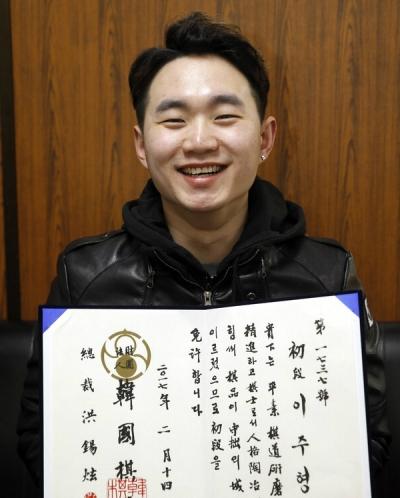 第一七三七號
初段 이주형
貴下는 平素 棋道硏磨
精進하고 棋士로서 人格陶冶
힘써 棋品이 守拙의 域
이르렀으므로 初段을
免許합니다
二〇一七年 二月十四
財團法人
韓國棋
總裁 洪錫炫